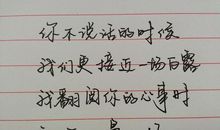 你不说话的时候
我们更接近一场白露
我翻阅你的心事时